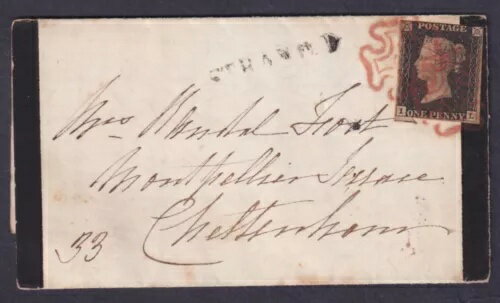 POSTAGE
I L
ONE PENNY
STRAND
Mrs Kendal
Montpellier Terrace
Cheltenham
33